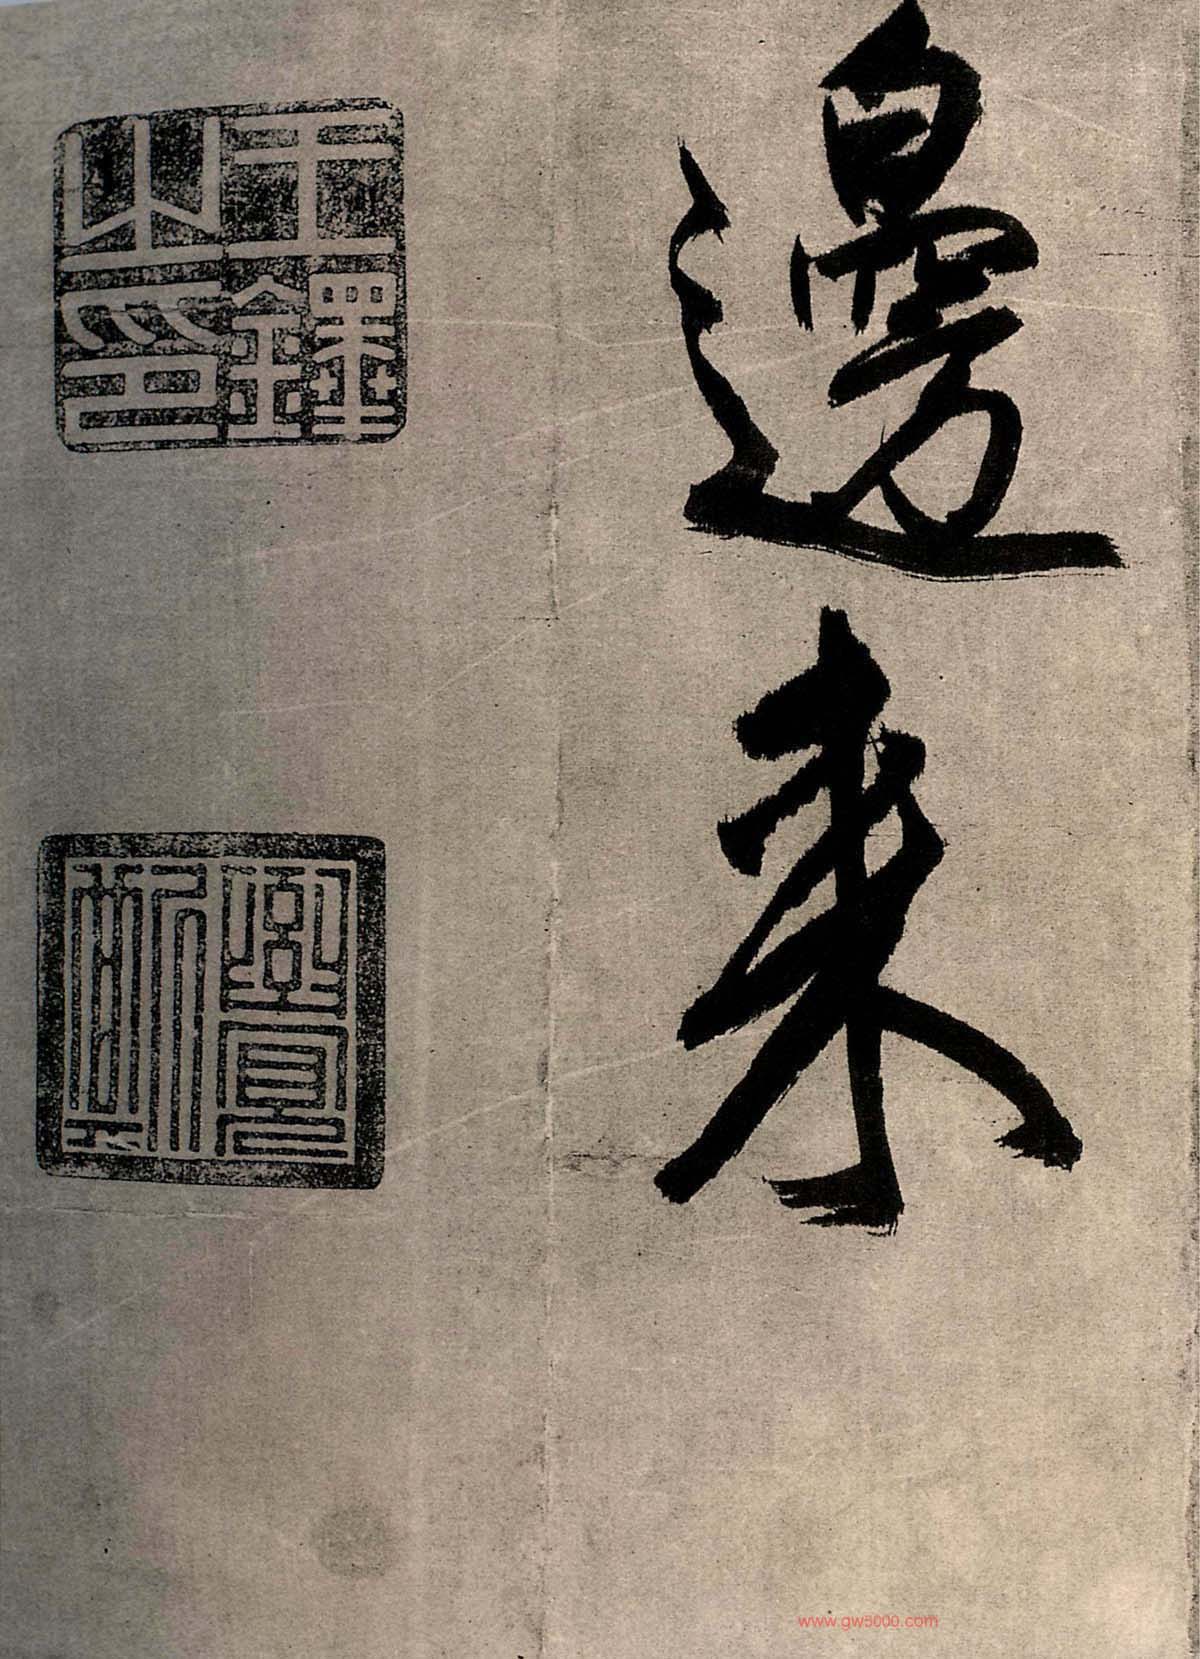 邊來
王鐸
之印
www.gw5000.com